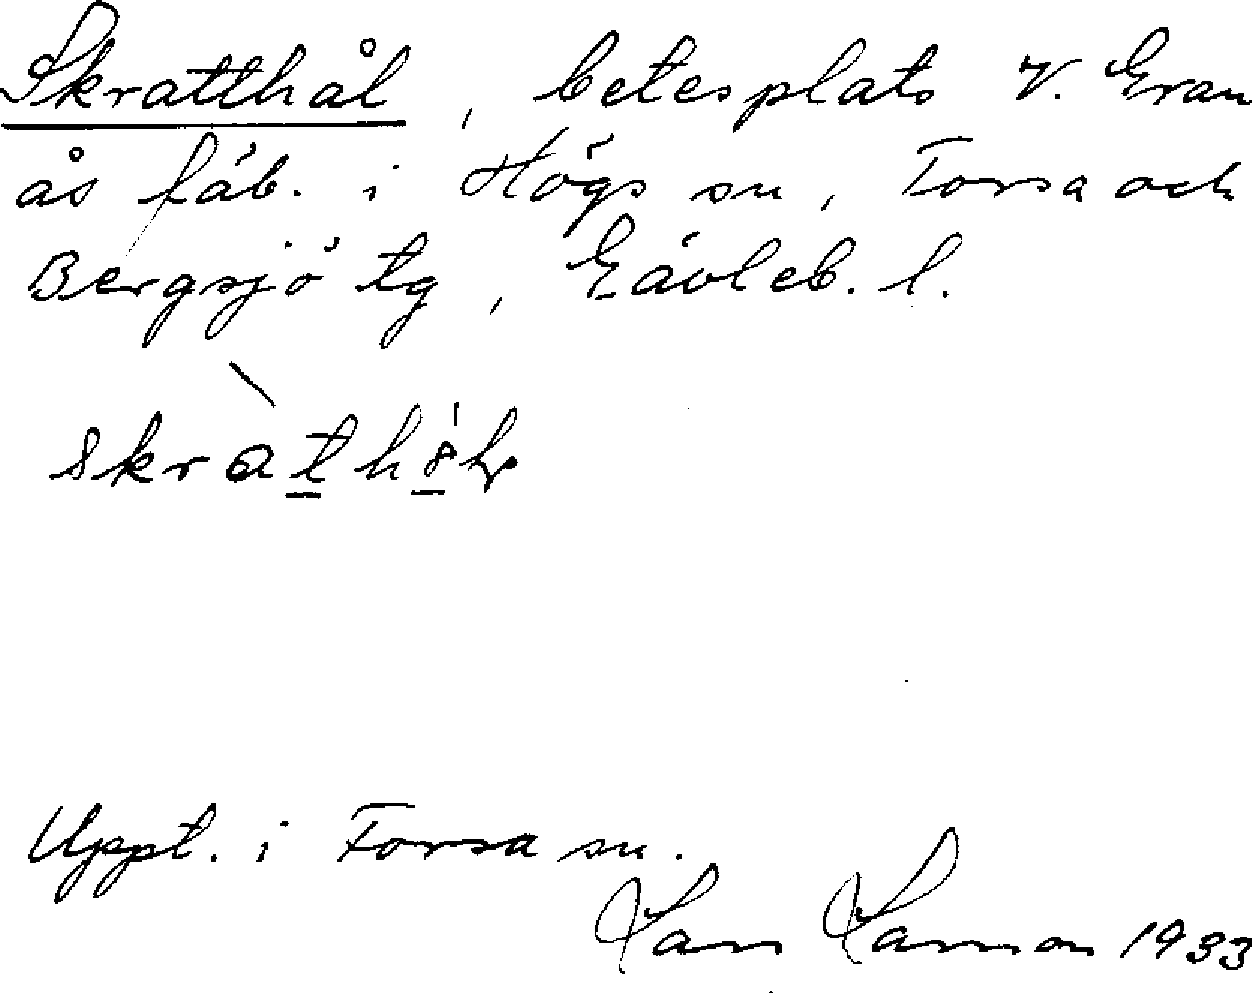 Skratthål, betesplats V. Gran
ås fäb. i Högs sn, Forsa och
Bergsjö tg, Gävleb. l.
Uppt. i Forsa sn.
Lars Larsson 1933